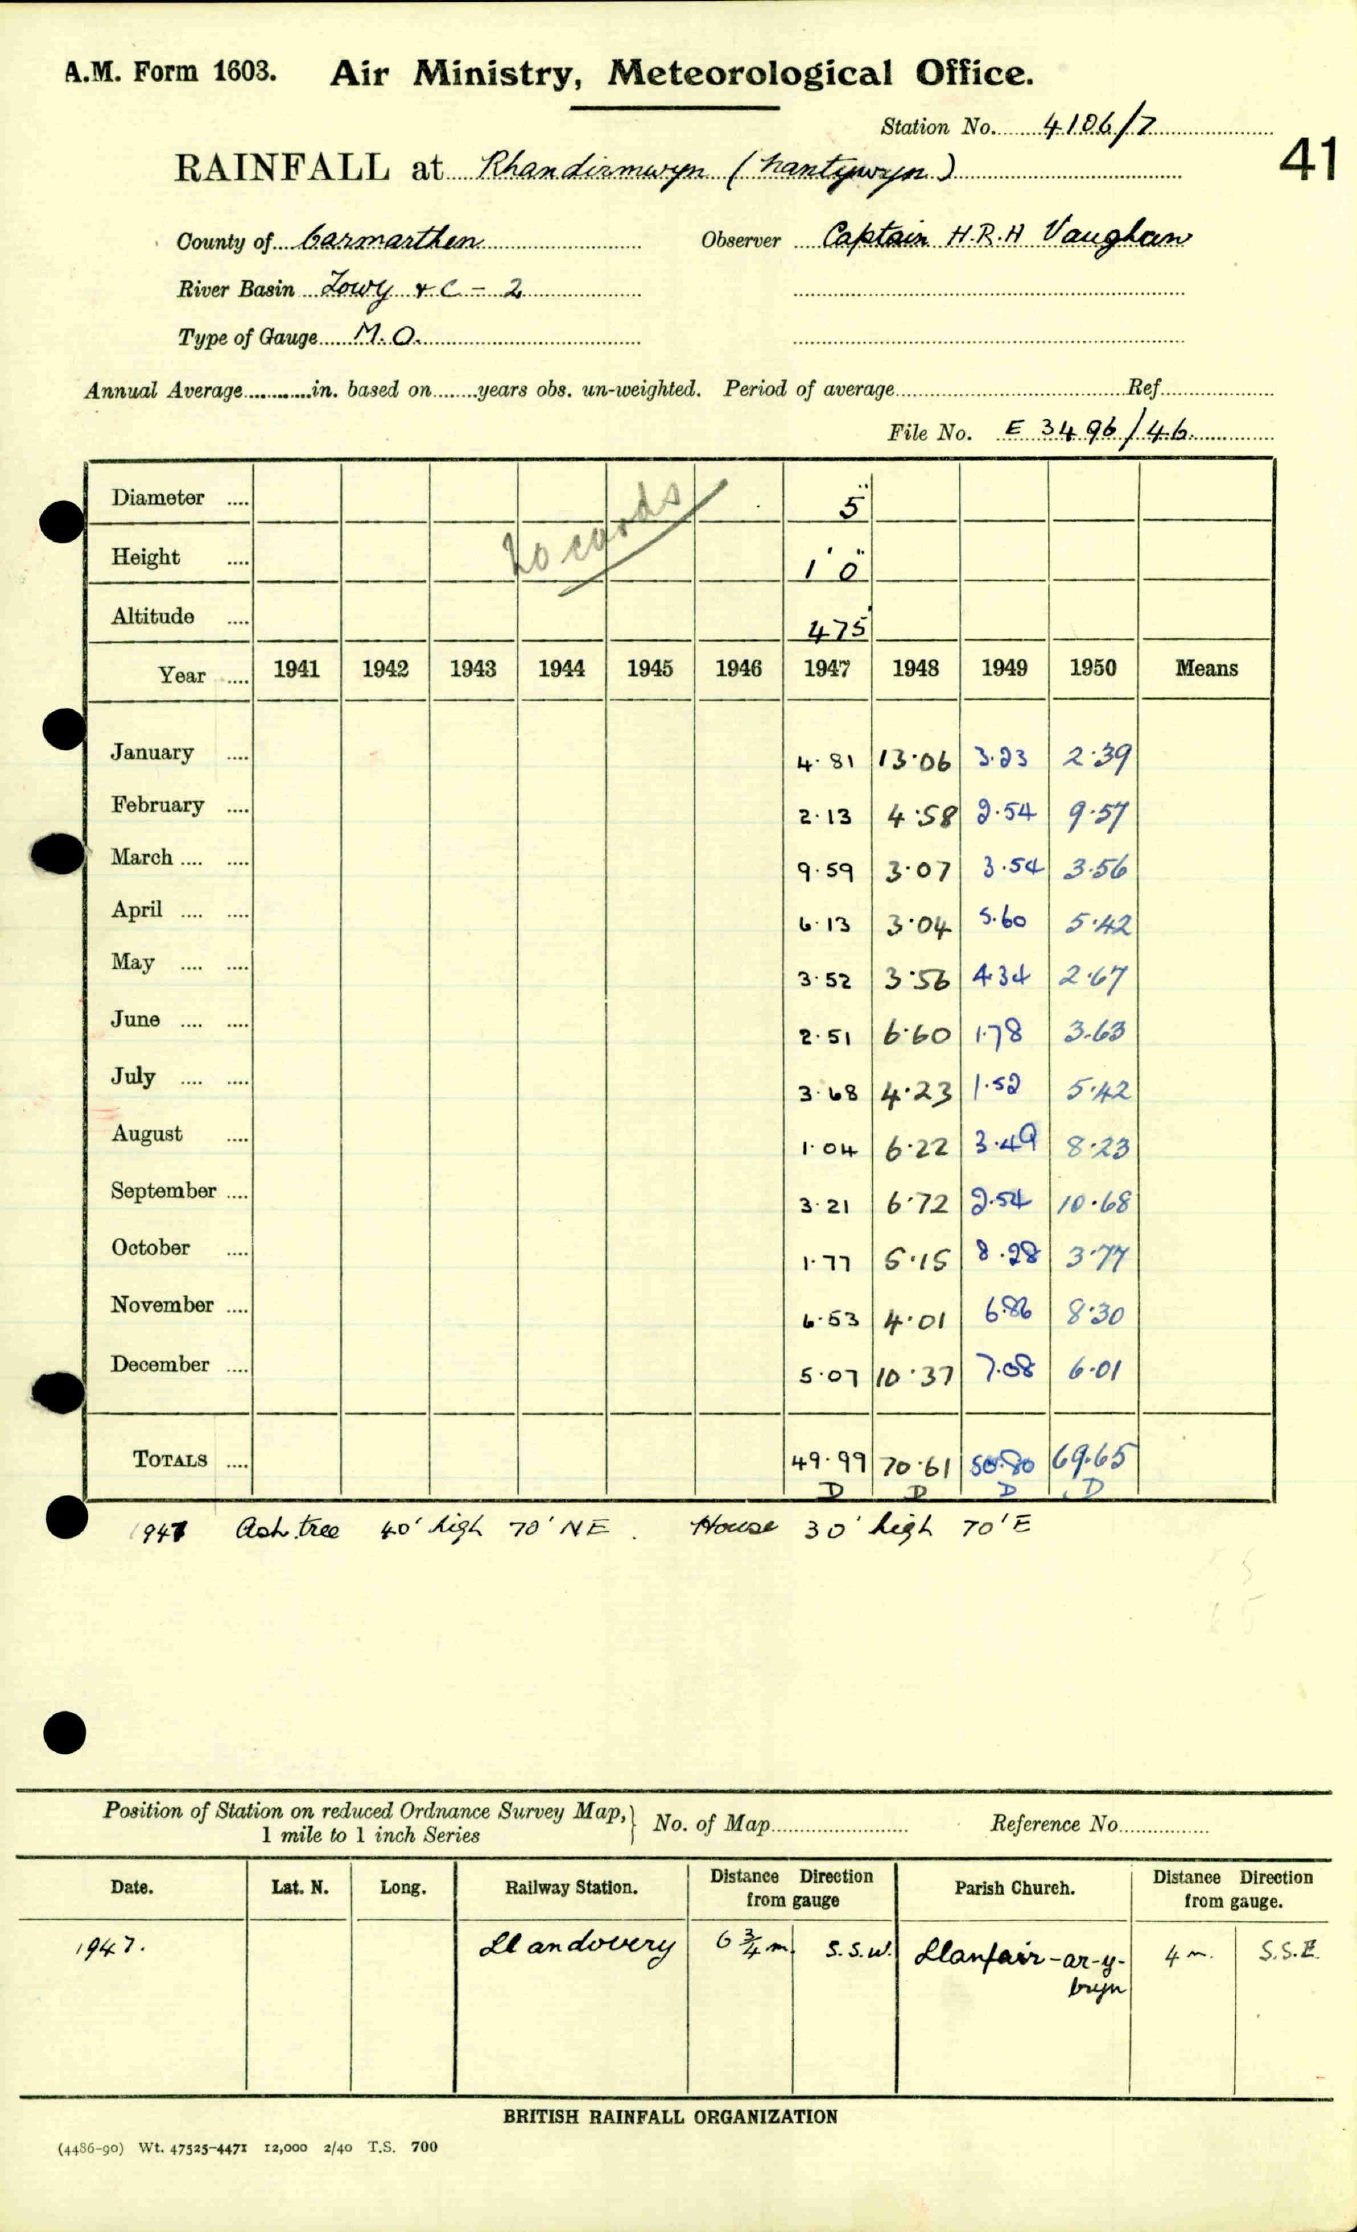 A.M. Form 1603. Air Ministry, Meteorological Office.
Station No. 4106/7
41
RAINFALL at Rhandirmwyn (Nantywyn)
County of Carmarthen Observer Captain H.R.H Vaughan
River Basin Towy & C - 2
Type of Gauge M.O.
Annual Average in. based on years obs. un-weighted. Period of average Ref
File No. E 3496/46
20 cards
Diameter 5"
Height 1' 0"
Altitude 475'
Year 1941 1942 1943 1944 1945 1946 1947 1948 1949 1950 Means
January 4.81 13.06 3.23 2.39
February 2.13 4.58 2.54 9.57
March 9.59 3.07 3.54 3.56
April 6.13 3.04 5.60 5.42
May 3.52 3.56 4.34 2.67
June 2.51 6.60 1.78 3.63
July 3.68 4.23 1.52 5.42
August 1.04 6.22 3.49 8.23
September 3.21 6.72 2.54 10.68
October 1.77 5.15 8.28 3.77
November 6.53 4.01 6.86 8.30
December 5.07 10.37 7.08 6.01
TOTALS 49.99 70.61 50.80 69.65
D D D D
1947 Ash tree 40' high 70' NE. House 30' high 70' E
Position of Station on reduced Ordnance Survey Map, 1 mile to 1 inch Series } No. of Map Reference No
Date. Lat. N. Long. Railway Station. Distance Direction from gauge Parish Church. Distance Direction from gauge.
1947. Llandovery 6 3/4 m. S.S.W. Llanfair-ar-y-bryn 4 m. S.S.E.
BRITISH RAINFALL ORGANIZATION
(4486-90) Wt. 47525-4471 12,000 2/40 T.S. 700